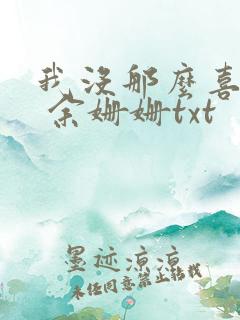 我没那麼喜
余姗姗txt
墨迹凉凉
未经同意禁止转载